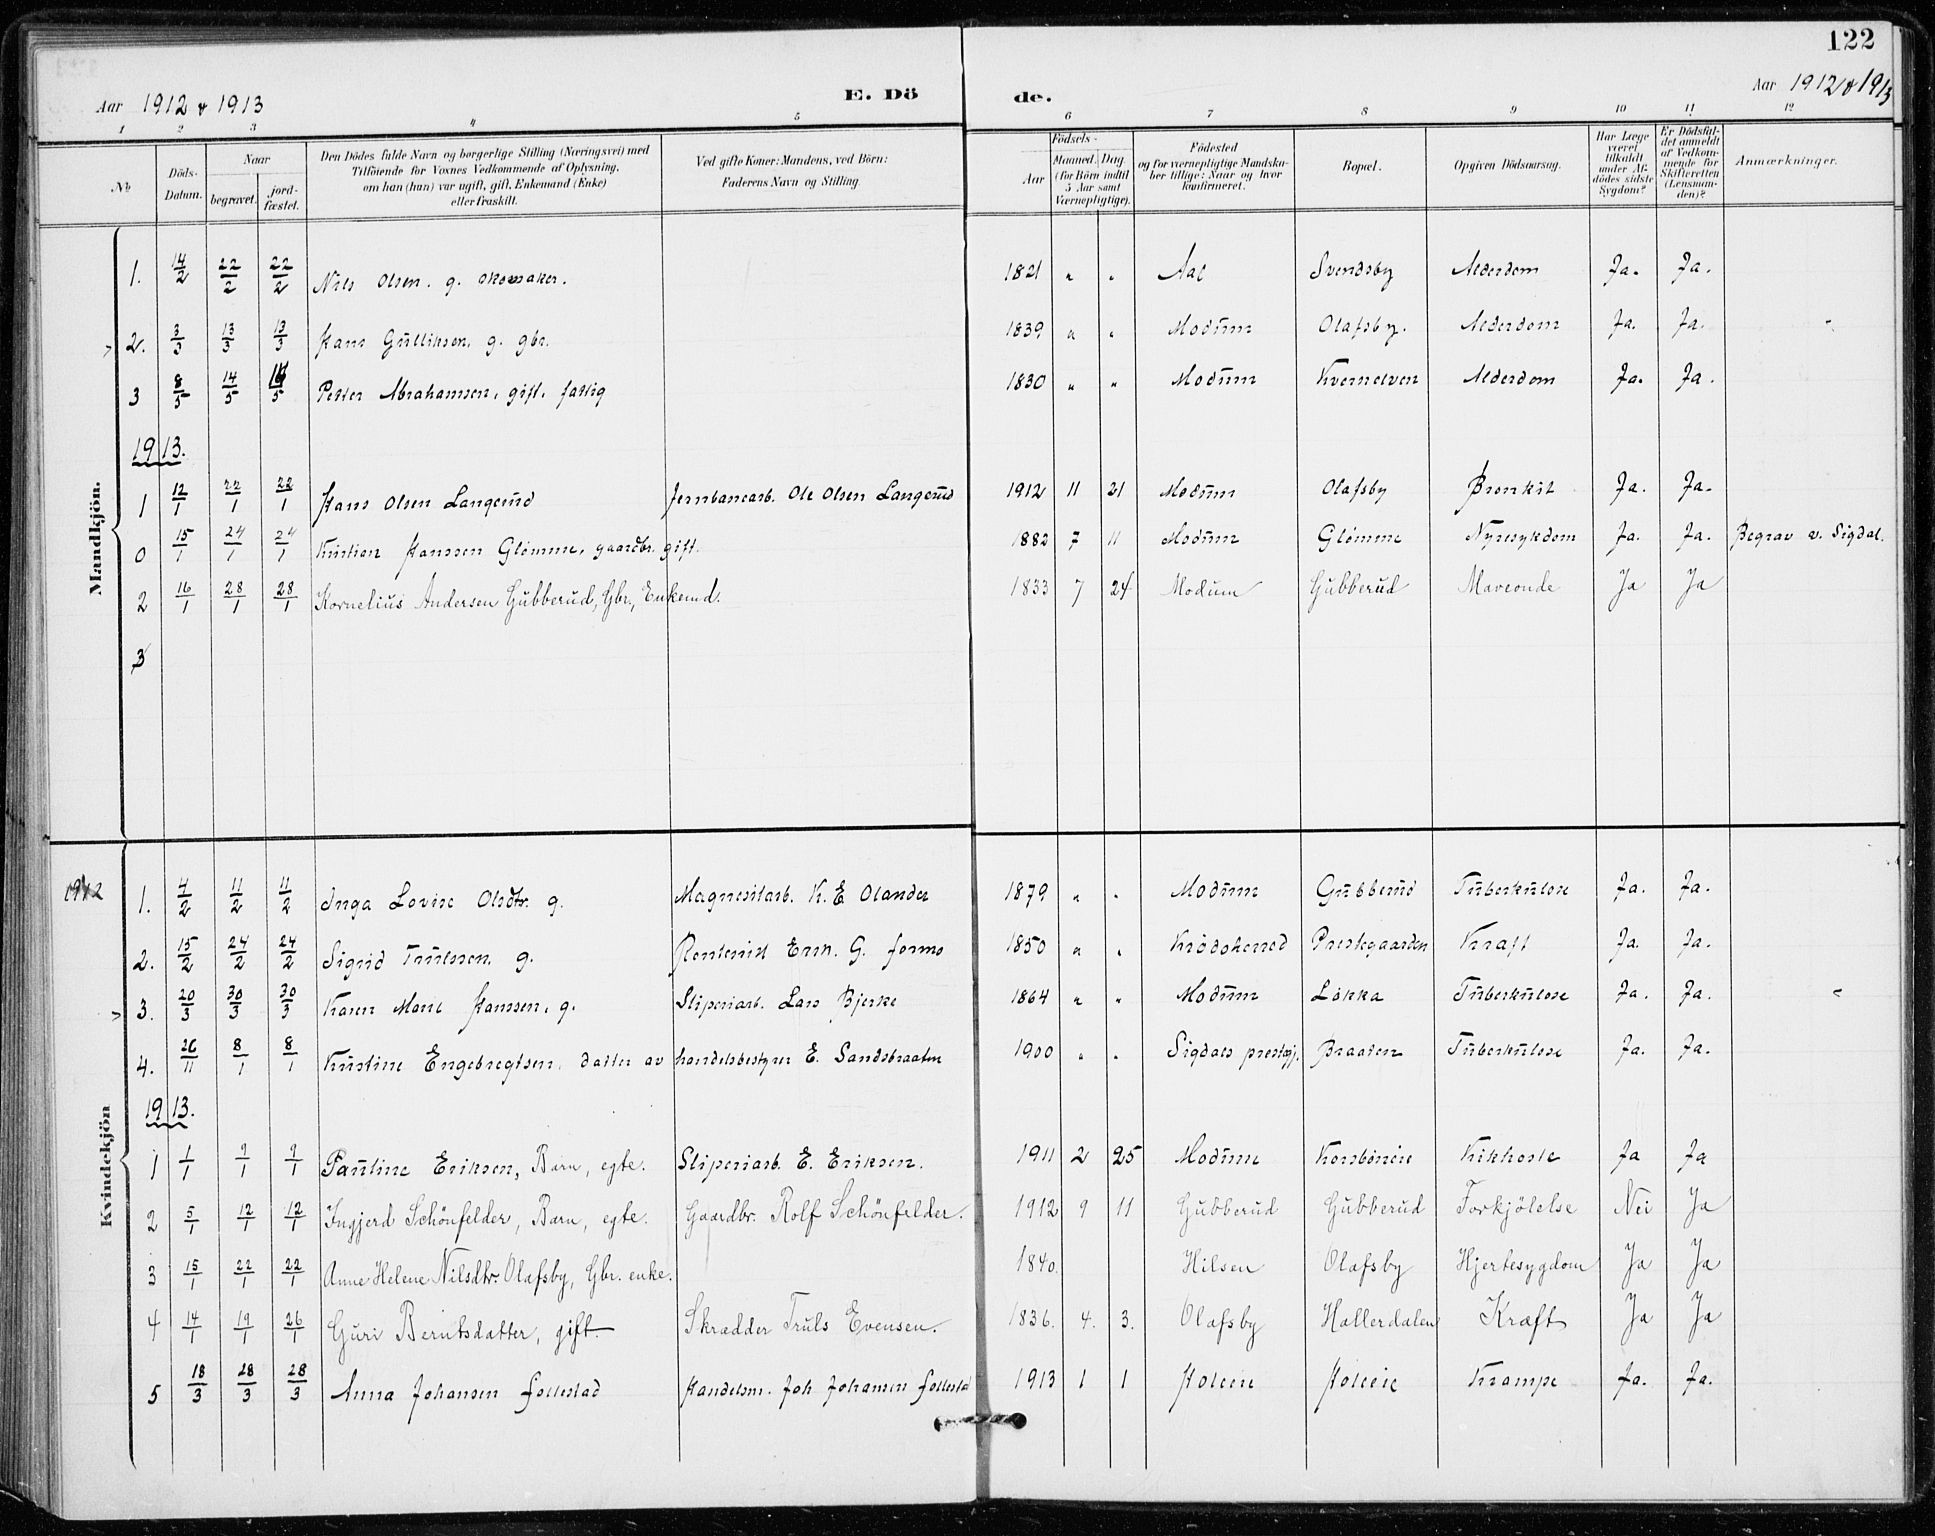 122
Aar 1912 & 1913 E. Dö de. Aar 1912 & 1913
1 2 3 4 5 6 7 8 9 10 11 12
No Döds-Datum. Naar begravet. jord-fæstet. Den Dödes fulde Navn og borgerlige Stilling (Næringsvei) med Tilföiende for Voxnes Vedkommende af Oplysning, om han (hun) var ugift, gift, Enkemand (Enke) eller fraskilt. Ved gifte Koner: Mandens, ved Börn: Faderens Navn og Stilling. Födsels- Aar Maaned. Dag (for Börn indtil 5 Aar samt Værnepligtige). Födested og for værnepligtige Mandskaber tillige: Naar og hvor konfirmeret. Bopæl. Opgiven Dödsaarsag. Har Læge været tilkaldt under Afdödes sidste Sygdom? Er Dödsfaldet anmeldt af Vedkommende for Skifteretten (Lensmanden)? Anmærkninger.
Mandkjön.
1. 14/2 22/2 22/2 Nils Olsen. g. skomaker. 1821 " " Aal Svendsby Alderdom Ja. Ja.
2. 3/3 13/3 13/3 Hans Gulliksen. g. gbr. 1839 " " Modum Olafsby. Alderdom Ja. Ja.
3 8/5 14/5 14/5 Petter Abrahamsen, gift. fattig 1830 " " Modum Kvernelven Alderdom Ja. Ja.
1913.
1 12/1 22/1 22/1 Hans Olsen Langerud Jernbanearb. Ole Olsen Langerud 1912 11 21 Modum Olafsby Bronkit Ja. Ja.
0 15/1 24/1 24/1 Kristian Hanssen Glömme, gaardbr. gift. 1882 7 11 Modum Glömme Nyresykdom Ja. Ja. Begrav v. Sigdal.
2 16/1 28/1 28/1 Kornelius Andersen Gubberud, Gbr., Enkemd. 1833 7 24 Modum Gubberud Maveonde Ja Ja
3
Kvindekjön
1912
1. 4/2 11/2 11/2 Inga Lovise Olsdtr. g. Magnesitarb. K. E Olander 1879 " " Modum Gubberud Tuberkulose Ja. Ja.
2. 15/2 24/2 24/2 Sigrid Trulssen. g. Rentenist Erik. G. formo 1850 " " Krödsherred Prestegaarden Kraft Ja. Ja.
3. 20/3 30/3 30/3 Karen Marie Hanssen, g. Sliperiarb. Lars Bjerke 1864 " " Modum Lökka Tuberkulose Ja. Ja.
4. 26/11 8/1 8/1 Kristine Engebregtsen, datter av handelsbestyrer E. Sandsbraaten 1900 " " Sigdals prestegj. Braaten Tuberkulose Ja. Ja.
1913.
1 1/1 9/1 9/1 Pauline Eriksen, Barn, egte. Sliperiarb. E. Eriksen. 1911 2 25 Modum Korsböneie Kikhoste Ja Ja
2 5/1 12/1 12/1 Ingjerd Schönfelder, Barn, egte. Gaardbr. Rolf Schönfelder. 1912 9 11 Gubberud Gubberud Forkjölelse Nei Ja
3 15/1 22/1 22/1 Anne Helene Nilsdtr. Olafsby, Gbr. enke. 1840. Hilsen Olafsby Hjertesygdom Ja Ja
4 14/1 19/1 26/1 Guri Berntsdatter, gift. Skrædder Truls Evensen. 1836. 4. 3. Olafsby Hallerdalen Kræft Ja Ja
5 18/3 28/3 28/3 Anna Johansen follestad Handelsm. Joh Johansen follestad 1913 1 1 Holeie Holeie Krampe Ja. Ja.